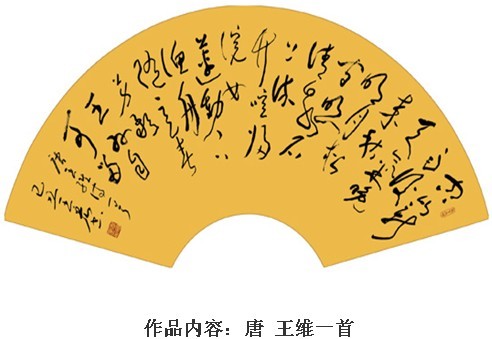 空山新雨后
天气晚来秋
明月松间照
清泉石上流
竹喧归
浣女
莲动下
渔舟
随意春
芳歇
王孙自
可留
唐王维诗一首
作品内容：唐 王维一首